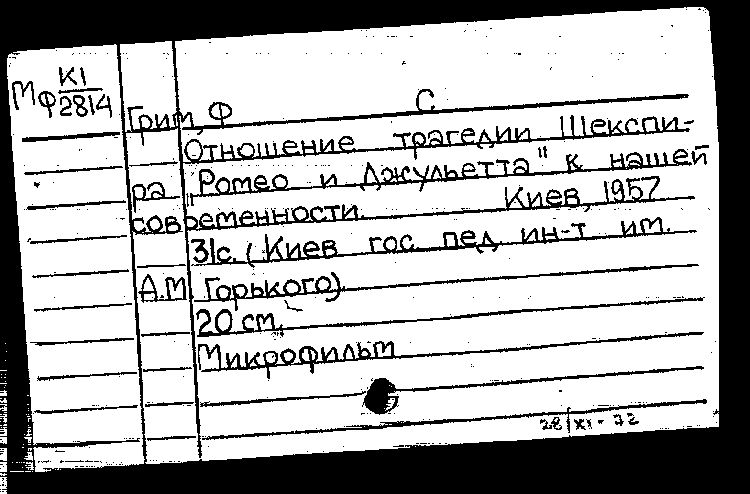 К1
МФ 2814
Грим, Ф С
Отношение трагедии Шекспи-
ра "Ромео и Джульетта" к нашей
современности. Киев, 1957
31с. (Киев гос. пед. ин-т им.
А.М. Горького).
20 см.
Микрофильм
28/XI-72